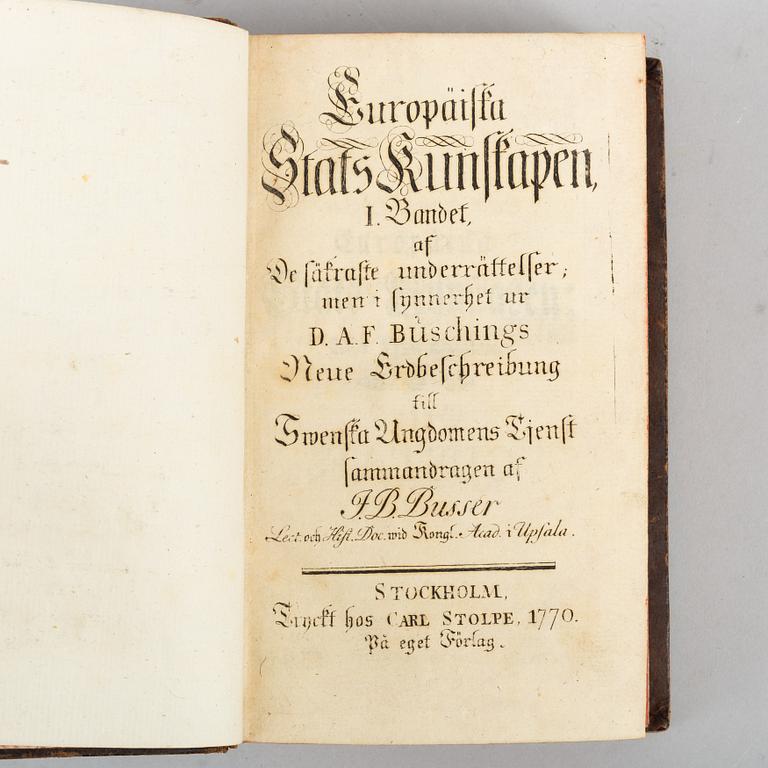 Europäiska
Stats Kunskapen,
I. Bandet,
af
De säkraste underrättelser;
men i synnerhet ur
D. A. F. Büschings
Neue Erdbeschreibung
till
Swenska Ungdomens Tjenst
sammandragen af
J. B. Busser
Lect. och Hist. Doc. wid Kongl. Acad. i Upsala.
STOCKHOLM,
Tryckt hos CARL STOLPE, 1770.
På eget Förlag.